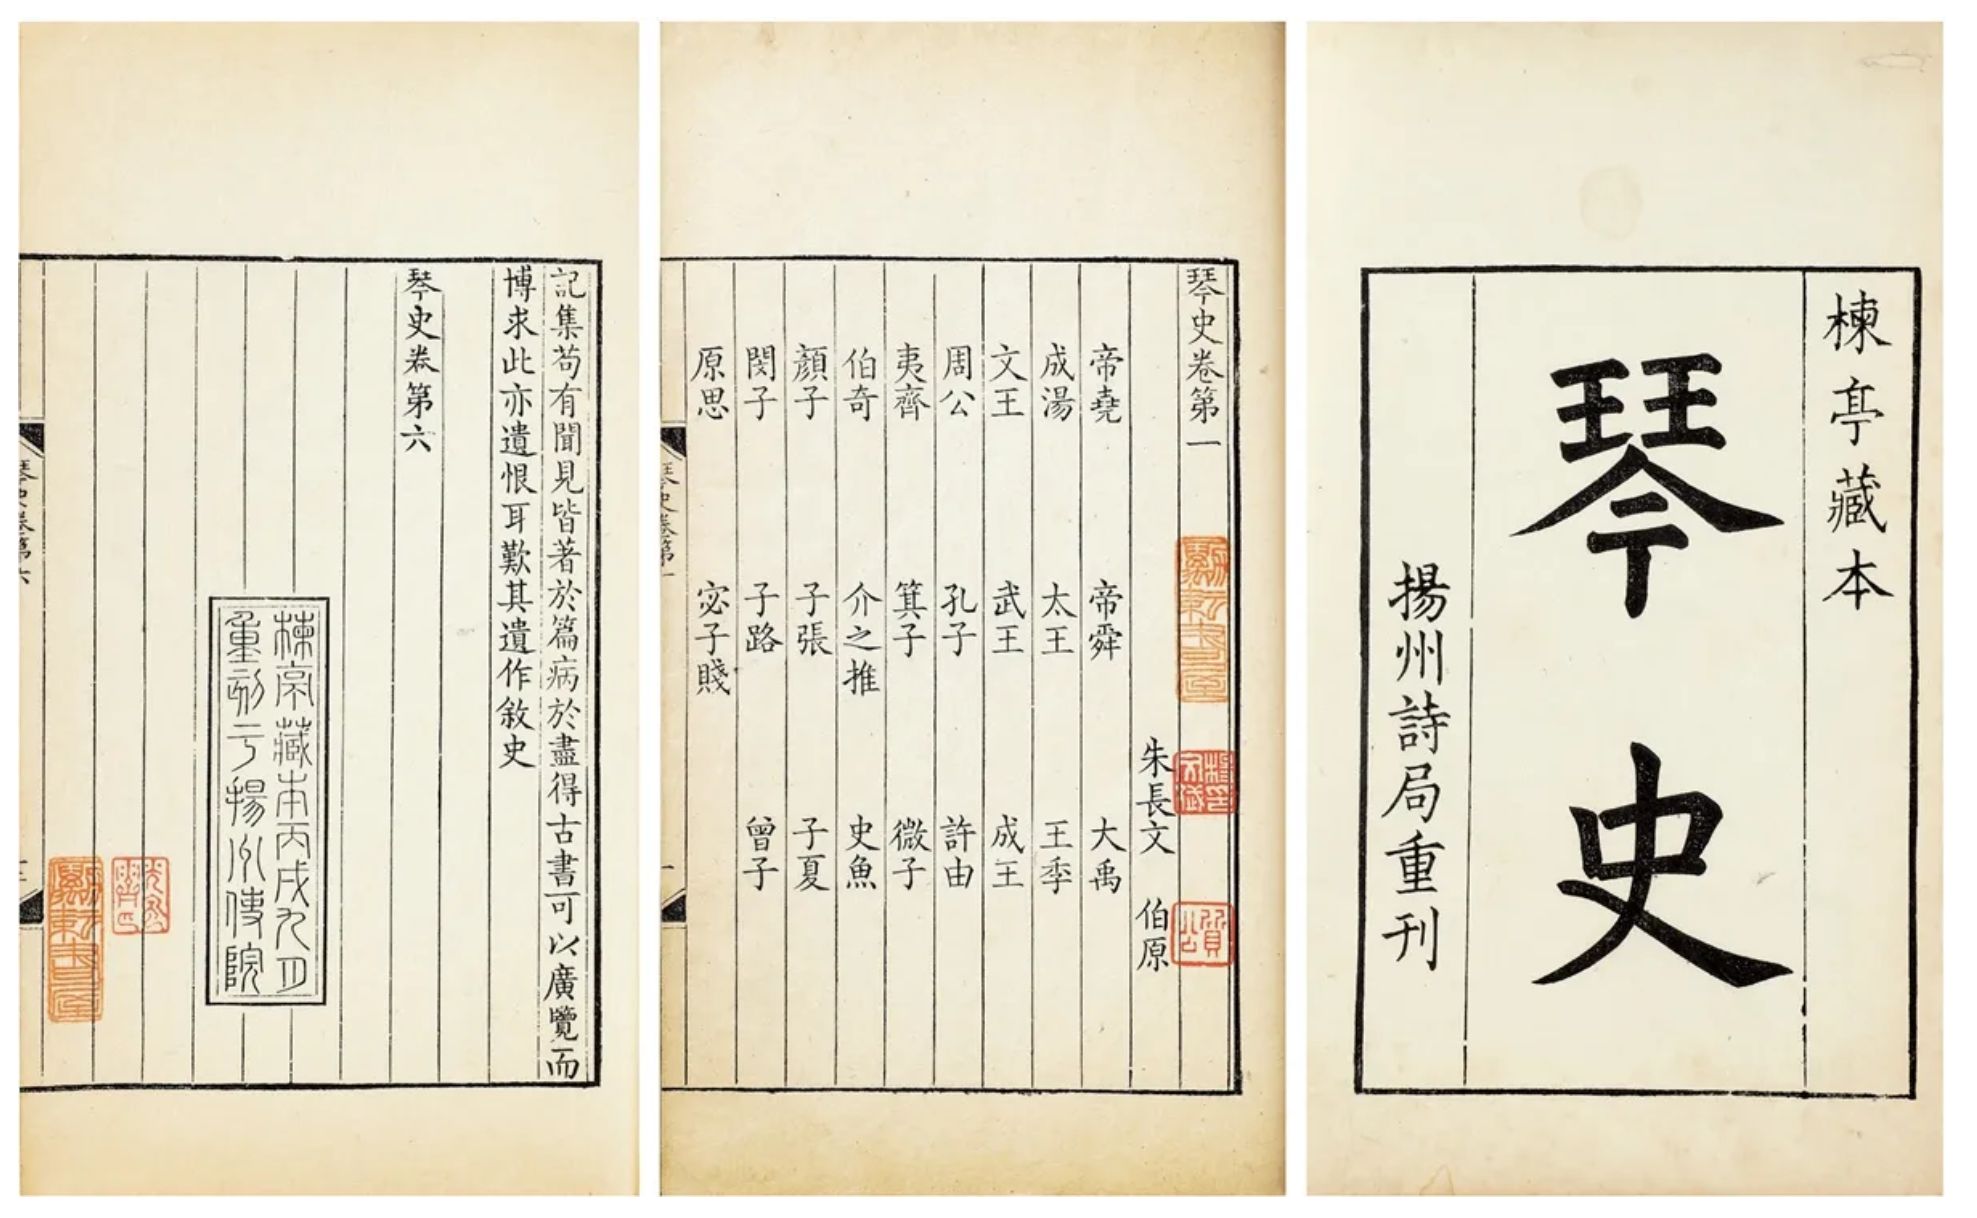 楝亭藏本
琴史
揚州詩局重刊
琴史卷第一
朱長文 伯原
帝堯 帝舜 大禹
成湯 太王 王季
文王 武王 成王
周公 孔子 許由
夷齊 箕子 微子
伯奇 介之推 史魚
顏子 子張 子夏
閔子 子路 曾子
原思 宓子賤
琴史卷第一
記集苟有聞見皆著於篇病於盡得古書可以廣覽而
博求此亦遺恨耳歎其遺作敘史
琴史卷第六
楝亭藏本丙戌九月
重刻于揚州使院
琴史卷第六